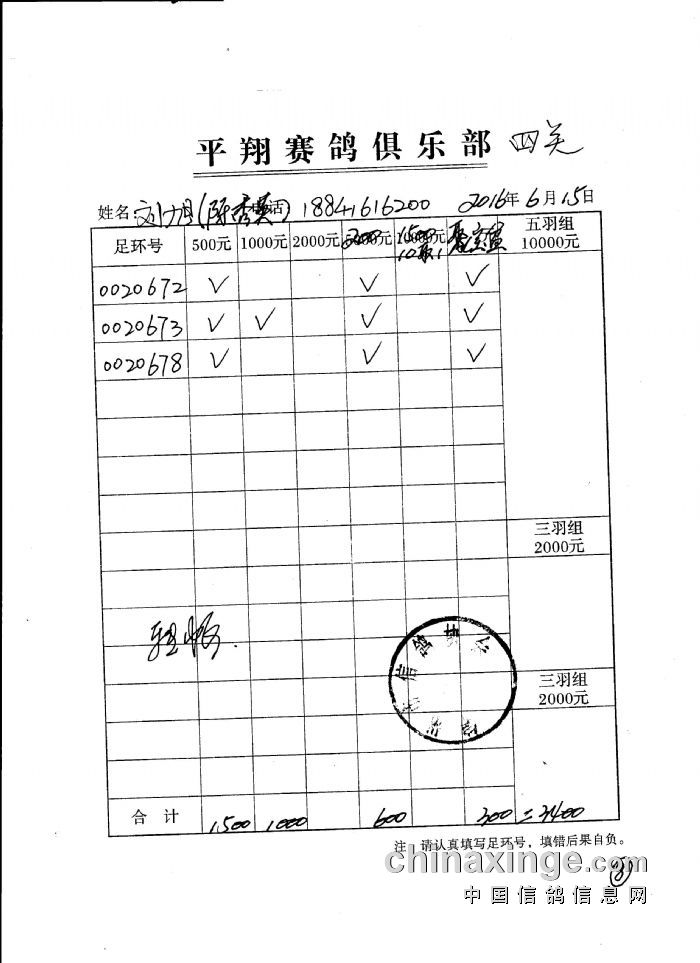 平翔赛鸽俱乐部 四关
姓名: 刘 (陈秀英) 18841616200 2016年6月15日
足环号 500元 1000元 2000元 五羽组 10000元
0020672 ✓ ✓ ✓
0020673 ✓ ✓ ✓ ✓
0020678 ✓ ✓ ✓
三羽组
2000元
三羽组
2000元
合计 1500 1000 600 300 = 3400
注 请认真填写足环号，填错后果自负。
chinaxinge.com
中国信鸽信息网
8